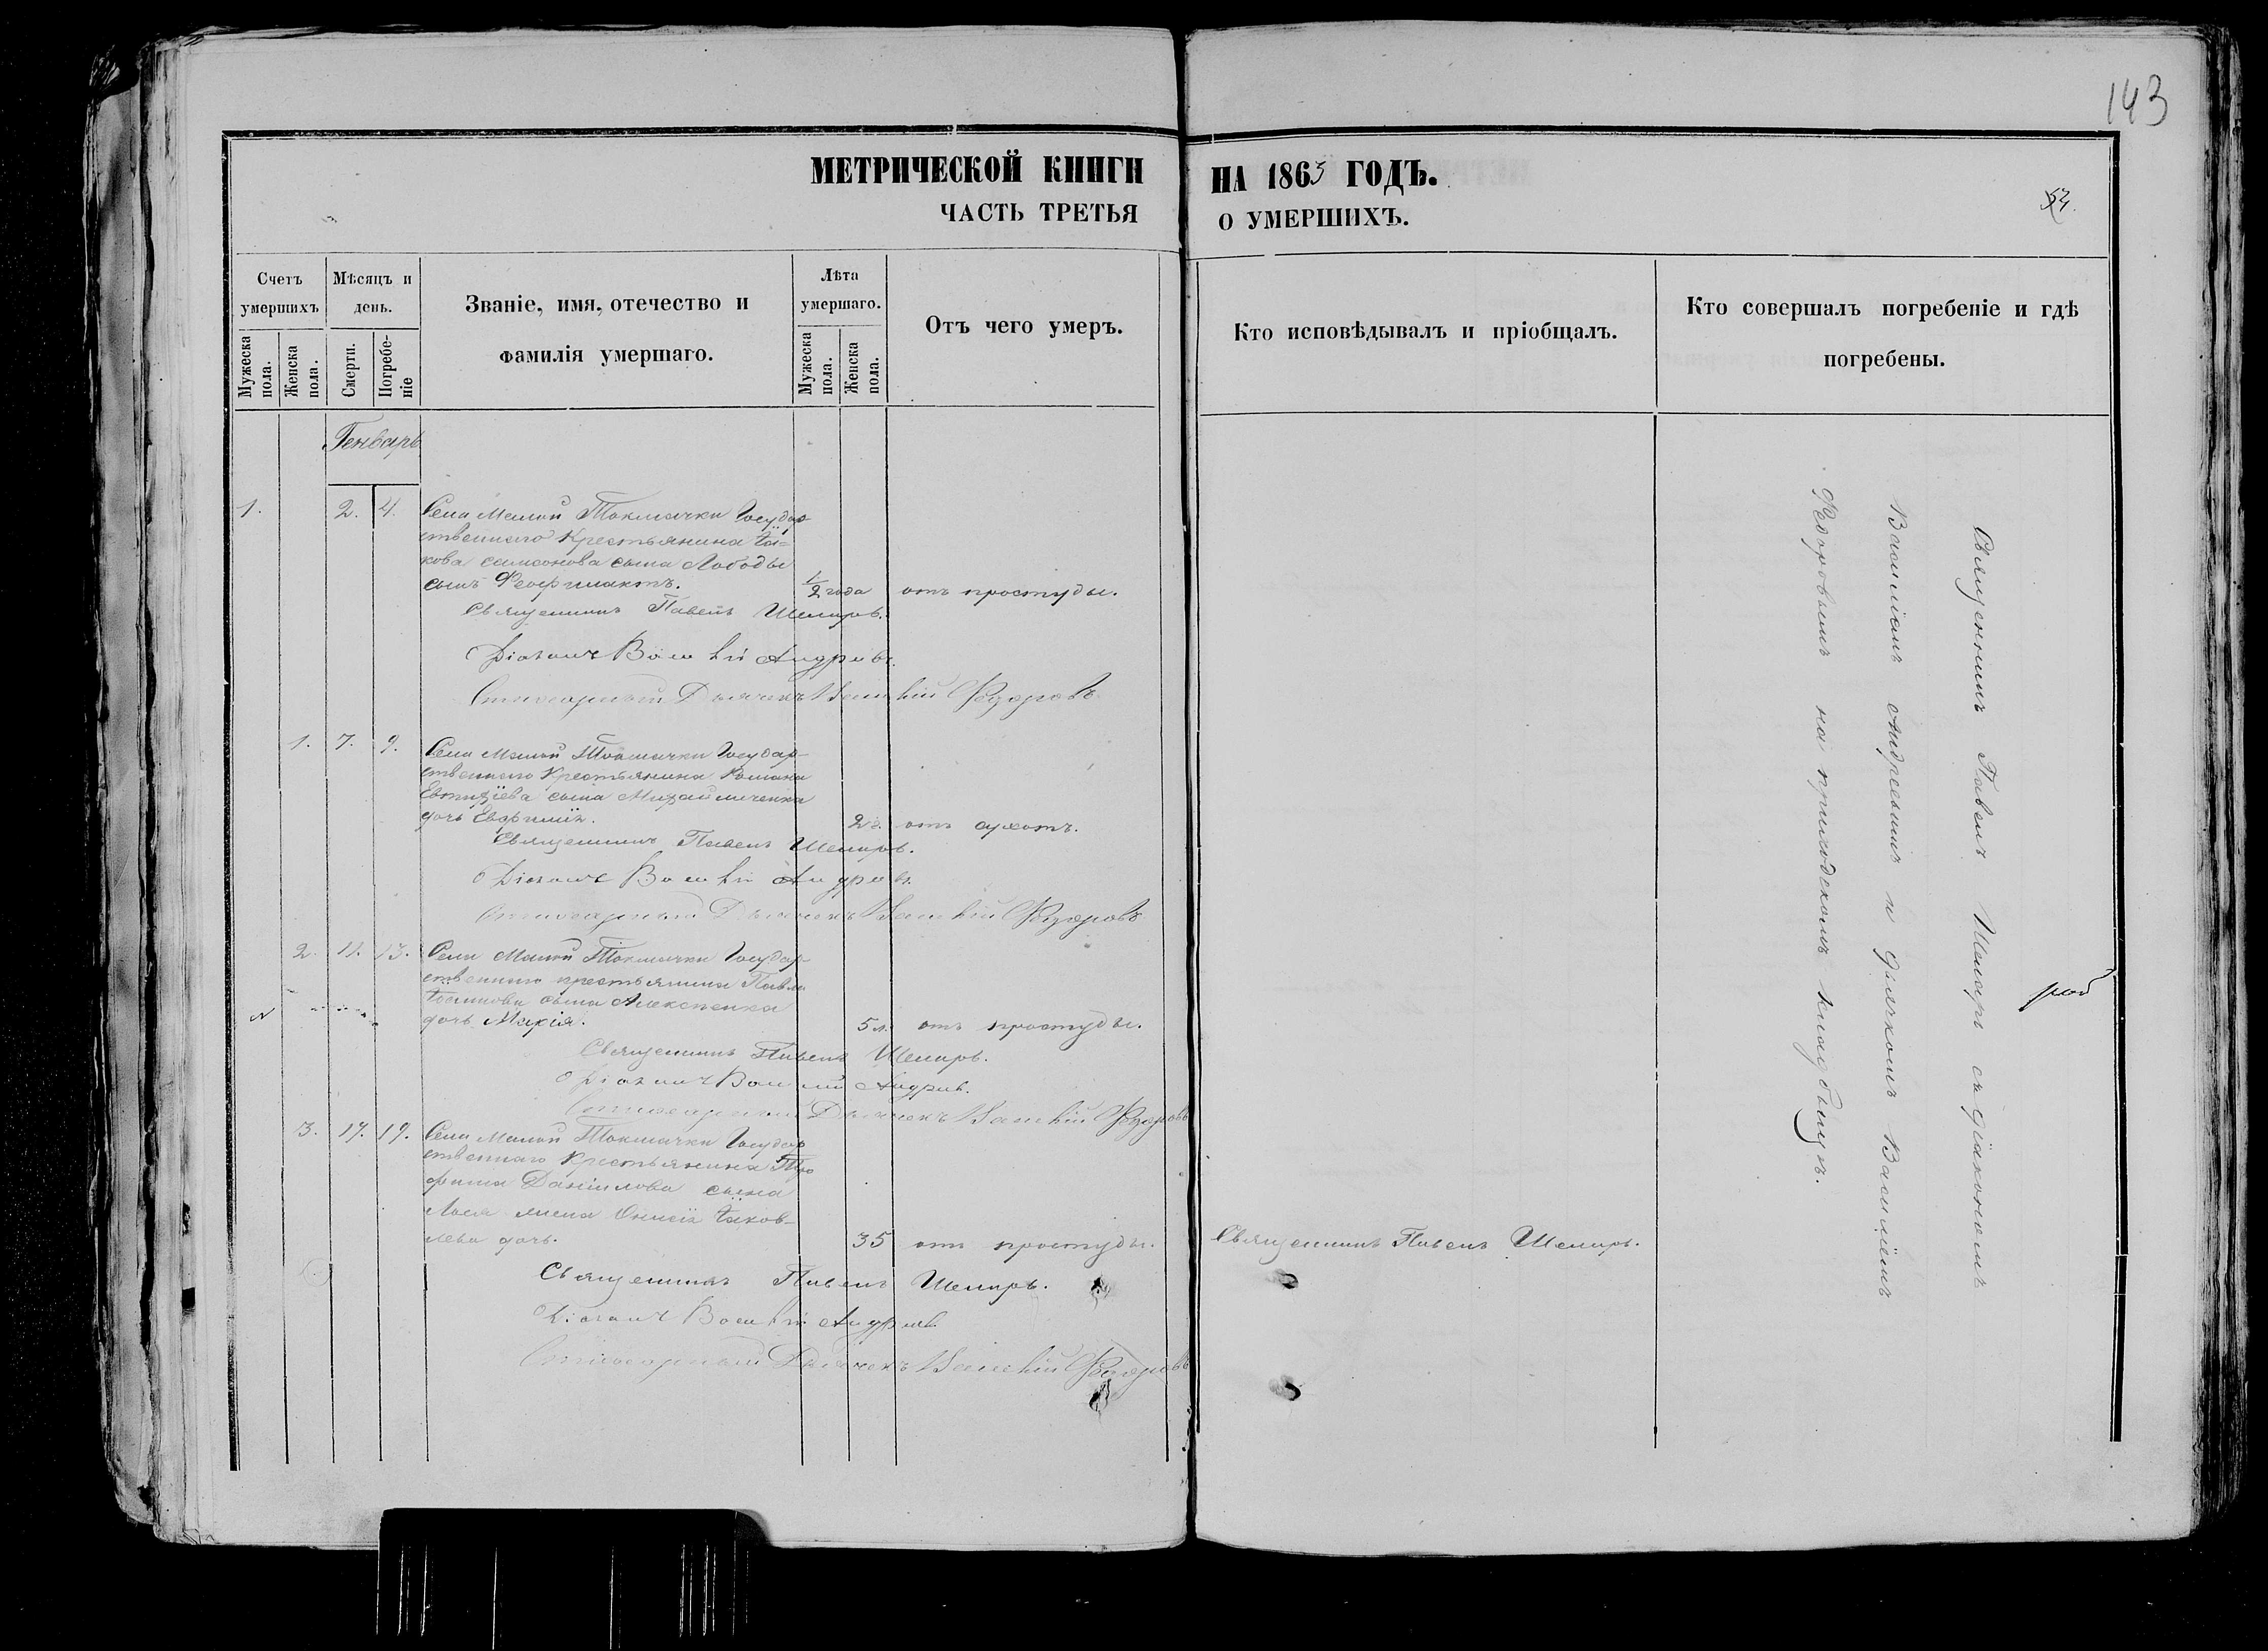 143
МЕТРИЧЕСКОЙ КНИГИ НА 1863 ГОДЪ.
ЧАСТЬ ТРЕТЬЯ О УМЕРШИХЪ.
Счетъ умершихъ
Мѣсяцъ и день.
Званіе, имя, отечество и фамилія умершаго.
Лѣта умершаго.
Отъ чего умеръ.
Кто исповѣдывалъ и пріобщалъ.
Кто совершалъ погребеніе и гдѣ погребены.
Мужеска пола.
Женска пола.
Смерти.
Погребе-ніе
Мужеска пола.
Женска пола.
Генварь
1. 2. 4. Села Малой Токмачки Государ-
ственнаго Крестьянина Іа-
кова Самсонова сына Лободы
сынъ Феофилактъ. 1/2 года отъ простуды.
Священникъ Павелъ
Діаконъ Василій Андреевъ.
Стихарный Дьячекъ Василій Федоровъ
1. 7. 9. Села Малой Токмачки Государ-
ственнаго Крестьянина Романа
сына Михайличенка
дочь Евфимія. 2 г. отъ сухотъ.
Священникъ Павелъ
Діаконъ Василій Андреевъ.
Стихарный Дьячекъ Василій Федоровъ
2. 11. 13. Села Малой Токмачки Государ-
ственнаго крестьянина Павла
сына Алексѣенка
дочь Марія. 5 л. отъ простуды.
Священникъ Павелъ
Діаконъ Василій Андреевъ.
Стихарный Дьячекъ Василій Федоровъ
3. 17. 19. Села Малой Токмачки Государ
ственнаго Крестьянина Тро
фима Даніилова сына
жена Іаков-
лева дочь. 35 отъ простуды. Священникъ Павелъ
Священникъ Павелъ
Діаконъ Василій Андреевъ.
Стихарный Дьячекъ Василій Федоровъ
Священникъ Павелъ съ діакономъ
Василіемъ Андреевымъ и дьячкомъ Василіемъ
Федоровымъ на приходскомъ кладбищѣ.